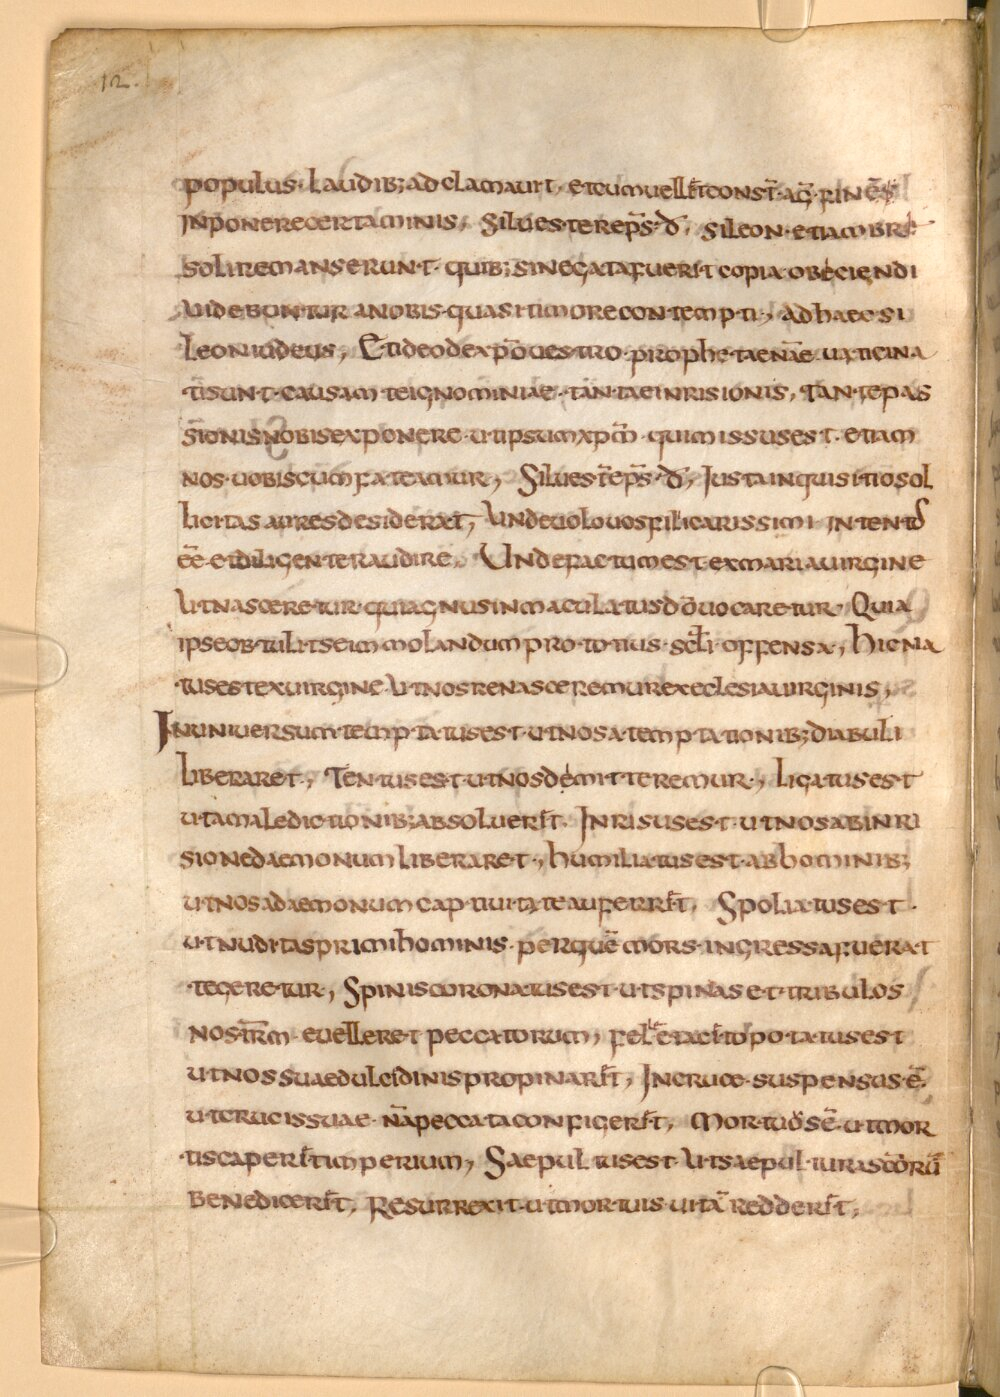 12.
populus· laudib; adclamauit, etcumuellet const̄· aḡ· fines
inponere certaminis, Siluester ep̄s· d̄· sileon· etiambre
soliremanserunt· quib; sinegatafuerit copia obiciendi
uidebuntur anobis· quasi timore contempti, adhaec si
leon iudeus, Et ideo dexp̄o uestro· prophetae nāe uaticina
ti sunt· causam teignominiae· tantae inrisionis, tante pas
sionis nobis exponere· ut ipsum xp̄m̄· quimissus est· etiam
nos· uobiscum fateamur, Siluest̄ ep̄s· d̄, Iusta inquisitio sol
licitas aures desiderat, Unde uolo uos filii carissimi intentos
ēē· et diligenter audire, Unde factum est· exmaria uirgine
Ut nasceretur· quiagnus inmaculatus d̄o uocaretur· Quia
ipse obtulit se immolandum pro totius· scl̄i offensa, hic na
tus est exuirgine· Ut nos renasceremur execlesia uirginis,
Inuniuersum temptatus est· ut nos a temptationib; diabuli
liberaret, Tentus est· ut nos demitteremur, ligatus est
ut a maledictionib; absolueret· Inrisus est· ut nos ab inri
sione daemonum liberaret·, humiliatus est· ab hominib;
ut nos a daemonum captiuitate auferret, Spoliatus est·
ut nuditas primi hominis· per quē mors· ingressa fuerat
tegeretur, Spinis coronatus est· ut spinas et· tribulos
nostrm̄ euelleret peccatorum, felle et aceto potatus est
ut nos suae dulcidinis propinaret, Incruce· suspensus· ē·
ut crucis suae· nr̄a peccata configeret, Mortuos ē· ut mor
tis caperet imperium, Saepultus est· Ut saepulturas sc̄orū
benediceret, Resurrexit· ut mortuis· uitā redderet,